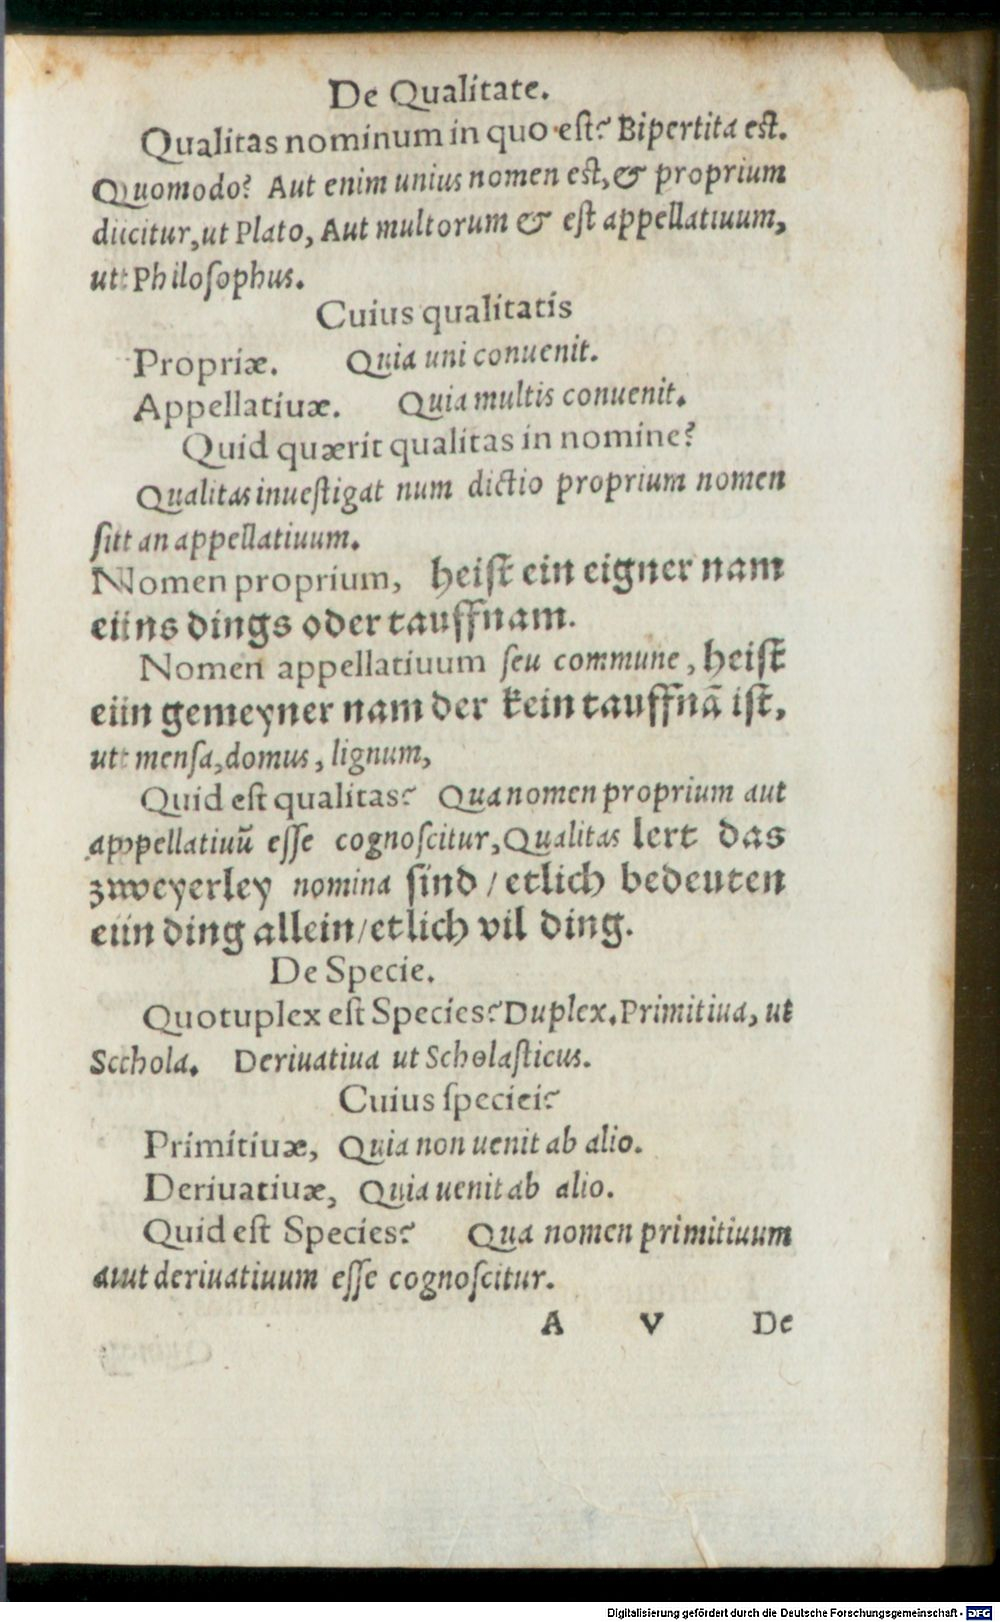 De Qualitate.
Qualitas nominum in quo est? Bipertita est.
Quomodo? Aut enim unius nomen est, & proprium
diicitur, ut Plato, Aut multorum & est appellatiuum,
utt Philosophus.
Cuius qualitatis
Propriæ. Quia uni conuenit.
Appellatiuæ. Quia multis conuenit.
Quid quærit qualitas in nomine?
Qualitas inuestigat num dictio proprium nomen
sitt an appellatiuum.
Nomen proprium, heist ein eigner nam
eiins dings oder tauffnam.
Nomen appellatiuum seu commune, heist
eiin gemeyner nam der kein tauffnā ist,
utt mensa, domus, lignum,
Quid est qualitas? Qua nomen proprium aut
appellatiuū esse cognoscitur, Qualitas lert das
zweyerley nomina sind / etlich bedeuten
eiin ding allein / etlich vil ding.
De Specie.
Quotuplex est Species? Duplex. Primitiua, ut
Scchola. Deriuatiua ut Scholasticus.
Cuius speciei?
Primitiuæ, Quia non uenit ab alio.
Deriuatiuæ, Quia uenit ab alio.
Quid est Species? Qua nomen primitiuum
auut deriuatiuum esse cognoscitur.
A V De
Digitalisierung gefördert durch die Deutsche Forschungsgemeinschaft - DFG